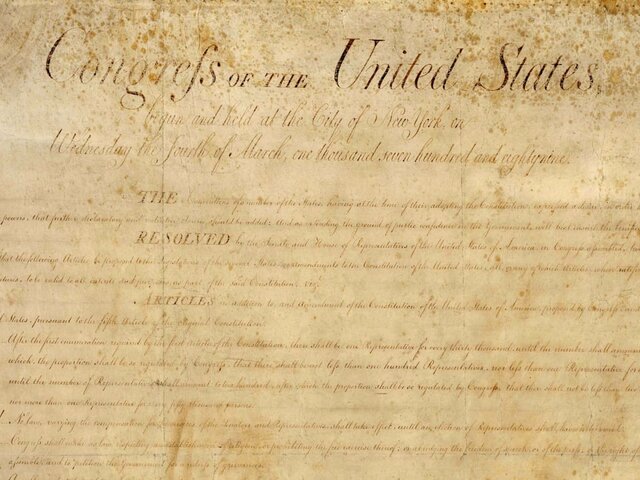 Congreſs OF THE United States,
begun and held at the City of New York, on
Wednesday the fourth of March, one thousand seven hundred and eighty nine.
THE Conventions of a number of the States, having at the time of their adopting the Constitution, expreſsed a desire
powers, that further declaratory and restrictive clauses should be added: And as extending the ground of public confidence in the Government, will best insure the
RESOLVED by the Senate and House of Representatives of the United States of America, in Congreſs aſsembled,
that the following Articles be proposed to the Legislatures of the several States, as amendments to the Constitution of the United States, all, or any of which Articles, when
to be valid to all intents and purposes, as part of the said Constitution; viz.
ARTICLES in addition to, and Amendment of the Constitution of the United States of America, proposed by Congreſs
States, pursuant to the fifth Article of the original Constitution.
After the first enumeration required by the first Article of the Constitution, there shall be one Representative for every thirty thousand, until the number shall amount
which, the proportion shall be so regulated by Congreſs, that there shall be not leſs than one hundred Representatives, nor leſs than one Representative for
until the number of Representatives shall amount to two hundred, after which the proportion shall be so regulated by Congreſs, that there shall not be leſs than
nor more than one Representative for every fifty thousand persons.
No law, varying the compensation for the services of the Senators and Representatives, shall take effect, until an election of Representatives shall have intervened.
Congreſs shall make no law respecting an establishment of religion, or prohibiting the free exercise thereof; or abridging the freedom of speech, or of the preſs; or the right of
aſsemble, and to petition the Government for a redreſs of grievances.